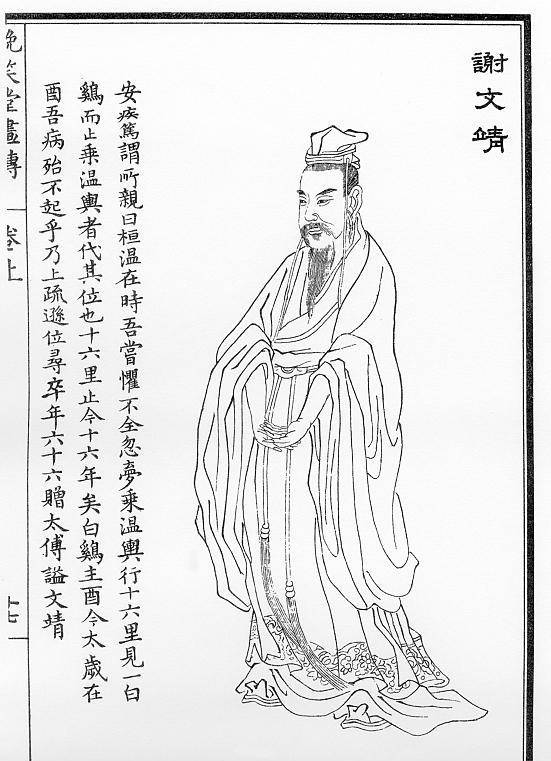 謝文靖
安疾篤謂所親曰桓温在時吾嘗懼不全忽夢乗温輿行十六里見一白
鷄而止乗温輿者代其位也十六里止今十六年矣白鷄主酉今太歲在
酉吾病殆不起乎乃上疏遜位尋卒年六十六贈太傅謚文靖
晚笑堂畫傳
卷上
十七